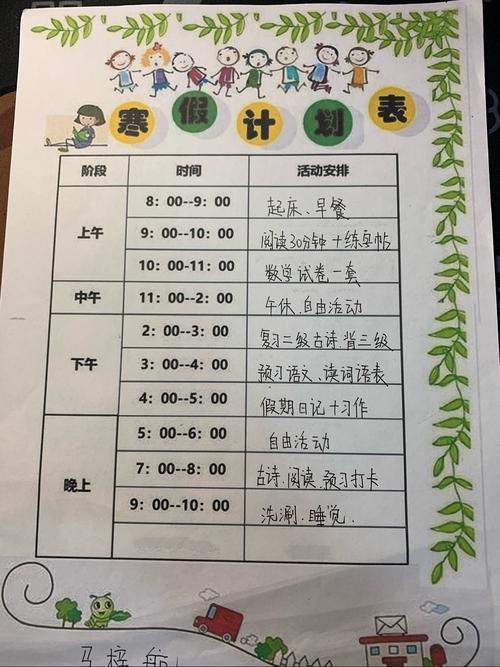 寒假计划表
阶段 时间 活动安排
上午 8：00--9：00 起床、早餐
9：00--10：00 阅读30分钟+练字帖
10：00-11：00 数学试卷一套
中午 11：00--2：00 午休、自由活动
下午 2：00--3：00 复习二级古诗.背三级
3：00--4：00 预习语文、读词语表
4：00--5：00 假期日记+习作
晚上 5：00--6：00 自由活动
7：00--8：00 古诗.阅读.预习打卡
9：00--10：00 洗涮.睡觉.
马梓航